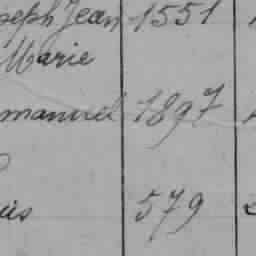 seph Jean 1551
Marie
manuel 1897
579